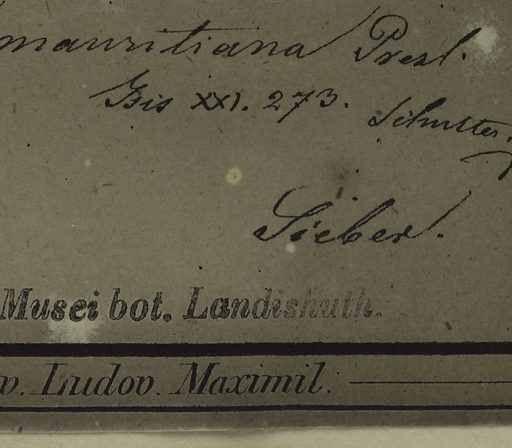 mauritiana Presl.
Isis XXI. 273. Schultes.
Sieber.
Musei bot. Landishuth.
v. Ludov. Maximil.